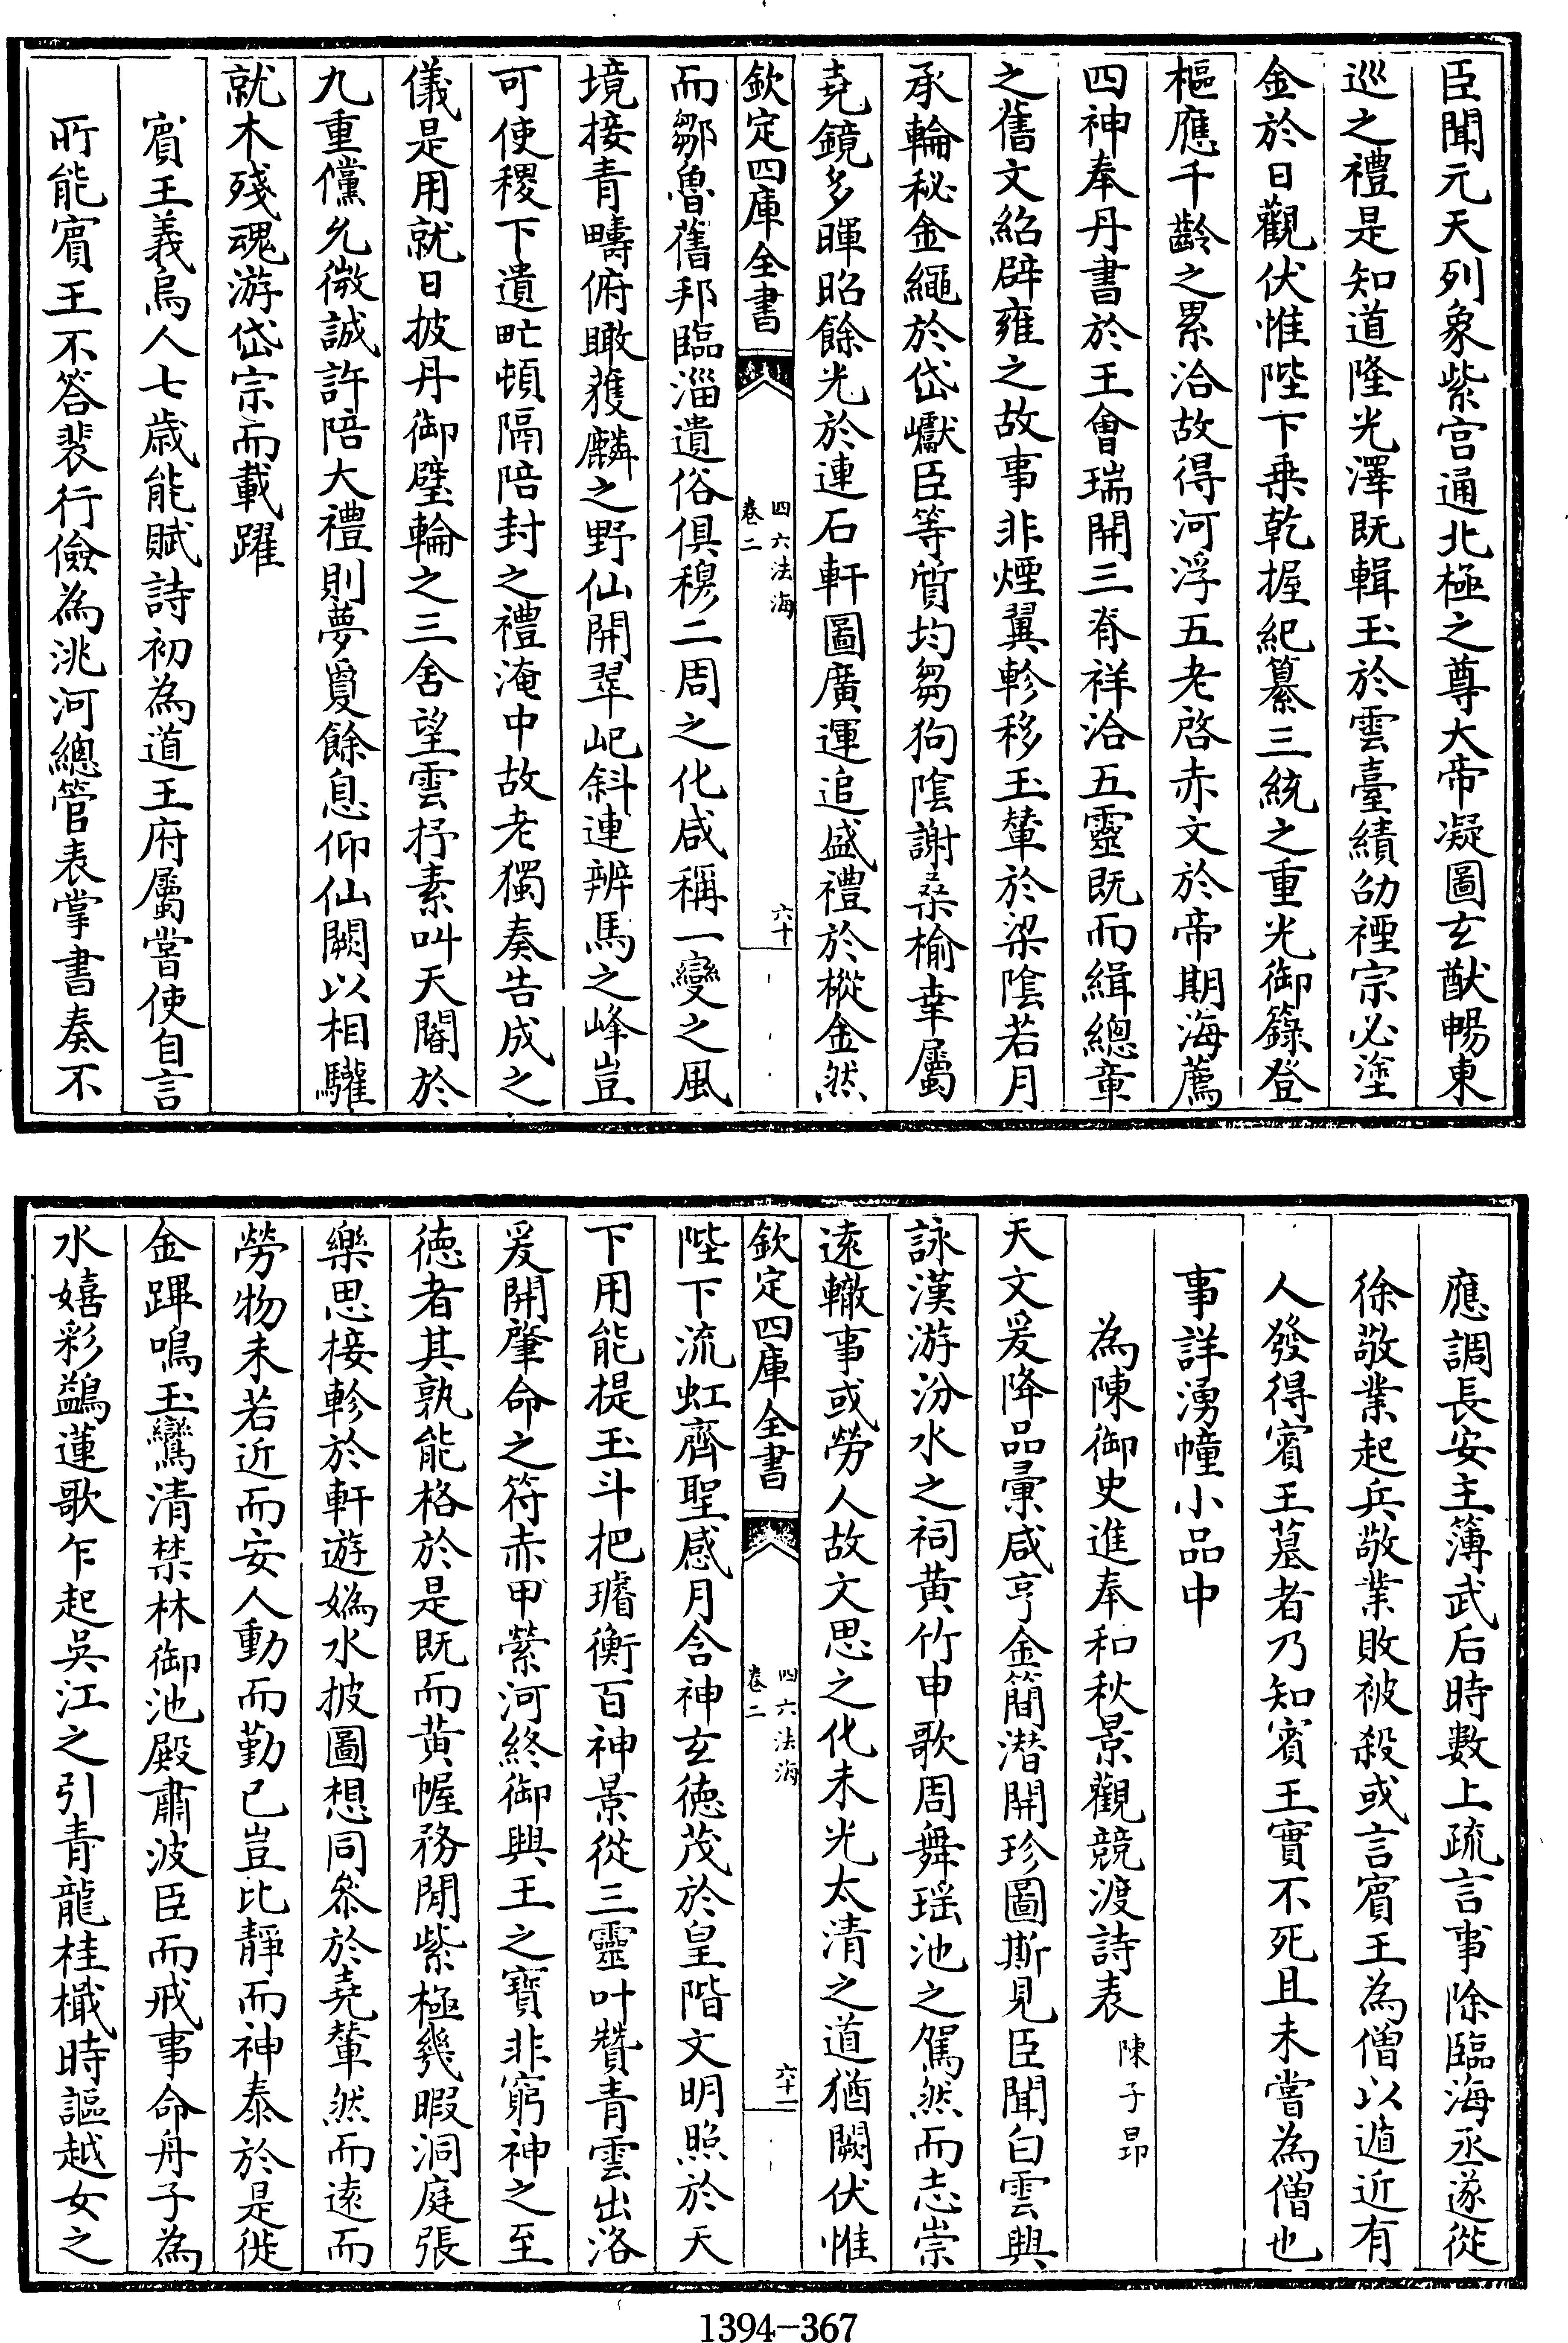 臣聞元天列象紫宫通北極之尊大帝凝圖玄猷暢東
巡之禮是知道隆光澤既輯玉於雲臺績劭禋宗必塗
金於日觀伏惟陛下乗乾握紀纂三統之重光御籙登
樞應千齡之累洽故得河浮五老啓赤文於帝期海薦
四神奉丹書於王㑹瑞開三脊祥洽五靈既而緝總章
之舊文紹辟雍之故事非煙翼軫移玉輦於梁陰若月
承輪秘金繩於岱巘臣等質均芻狗陰謝桑榆幸屬
堯鏡多暉昭餘光於連石軒圖廣運追盛禮於樅金然
欽定四庫全書
四六法海
卷二
六十
而鄒魯舊邦臨淄遺俗俱穆二周之化咸稱一變之風
境接青疇俯瞰獲麟之野仙開翠屺斜連辨馬之峰豈
可使稷下遺甿頓隔陪封之禮淹中故老獨奏告成之
儀是用就日披丹御璧輪之三舍望雲抒素叫天閽於
九重儻允微誠許陪大禮則夢寢餘息仰仙闕以相驩
就木殘魂游岱宗而載躍
賓王義烏人七歳能賦詩初為道王府屬嘗使自言
所能賓王不答裴行儉為洮河總管表掌書奏不
應調長安主簿武后時數上疏言事除臨海丞遂從
徐敬業起兵敬業敗被殺或言賓王為僧以遁近有
人發得賓王墓者乃知賓王實不死且未嘗為僧也
事詳湧幢小品中
為陳御史進奉和秋景觀競渡詩表
陳子昂
天文爰降品彚咸亨金簡潛開珍圖斯見臣聞白雲興
詠漢游汾水之祠黄竹申歌周舞瑶池之駕然而志崇
逺轍事或勞人故文思之化未光太清之道猶闕伏惟
欽定四庫全書
四六法海
卷二
六十一
陛下流虹齊聖感月含神玄徳茂於皇階文明照於天
下用能提玉斗把璿衡百神景從三靈叶贊青雲出洛
爰開肇命之符赤甲縈河終御興王之寳非窮神之至
徳者其孰能格於是既而黄幄務閒紫極幾暇洞庭張
樂思接軫於軒遊嬀水披圖想同叅於堯輦然而逺而
勞物未若近而安人動而勤己豈比靜而神泰於是徙
金蹕鳴玉鸞清禁林御池殿肅波臣而戒事命舟子為
水嬉彩鷁蓮歌乍起吳江之引青龍桂檝時謳越女之
1394-367